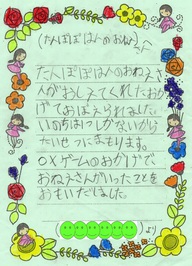 (たんぽぽはんのおねえさんへ)
たんぽぽはんのおねえさ
んがおしえてくれたおか
げでおぼえられました。
いのちは1つしかないから
たいせつにまもります。
○×ゲームのおかげで
おねえさんがいったことを
おもいだしました。
より